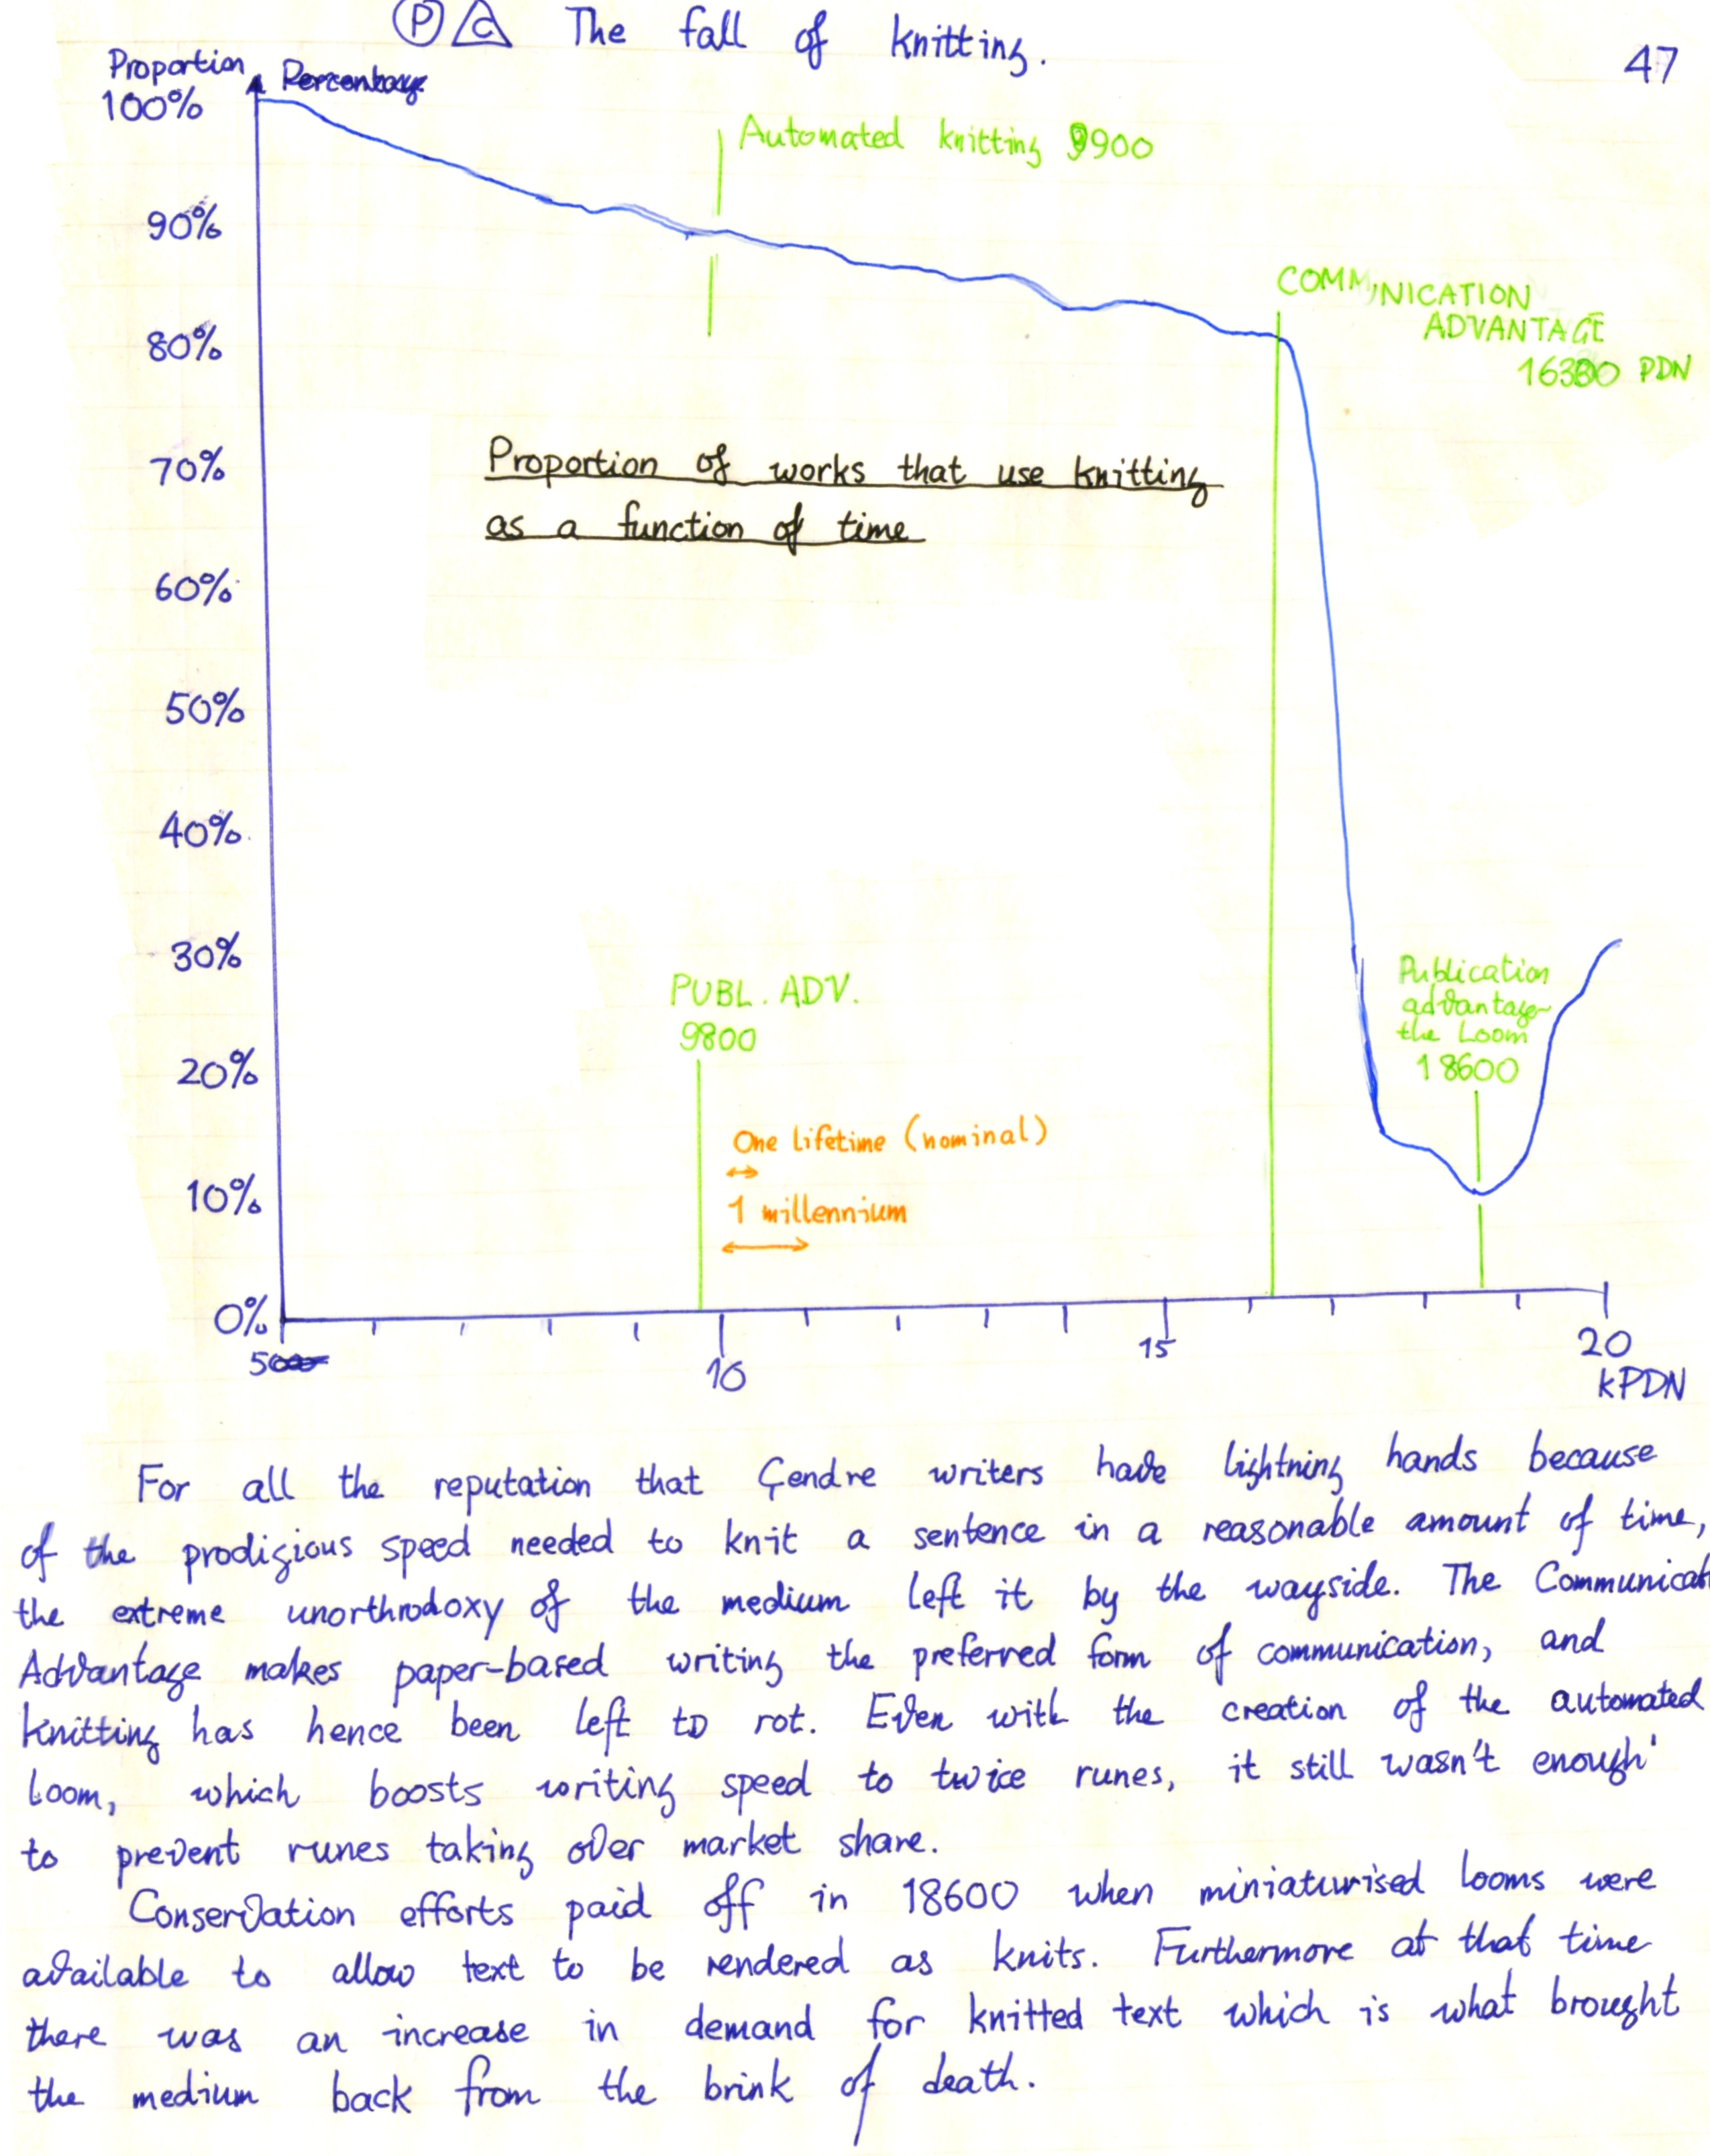 P C The fall of knitting.
47
Proportion
100%
Automated knitting 9900
90%
COMMUNICATION
ADVANTAGE
16300 PDN
80%
Proportion of works that use knitting
as a function of time
70%
60%
50%
40%
30%
20%
10%
0%
PUBL. ADV.
9800
Publication
advantage
the Loom
18600
One lifetime (nominal)
1 millennium
5
10
15
20
kPDN
For all the reputation that Çendre writers have lightning hands because
of the prodigious speed needed to knit a sentence in a reasonable amount of time,
the extreme unorthrodoxy of the medium left it by the wayside. The Communicat
Advantage makes paper-based writing the preferred form of communication, and
knitting has hence been left to rot. Even with the creation of the automated
loom, which boosts writing speed to twice runes, it still wasn't enough
to prevent runes taking over market share.
Conservation efforts paid off in 18600 when miniaturised looms were
available to allow text to be rendered as knits. Furthermore at that time
there was an increase in demand for knitted text which is what brought
the medium back from the brink of death.